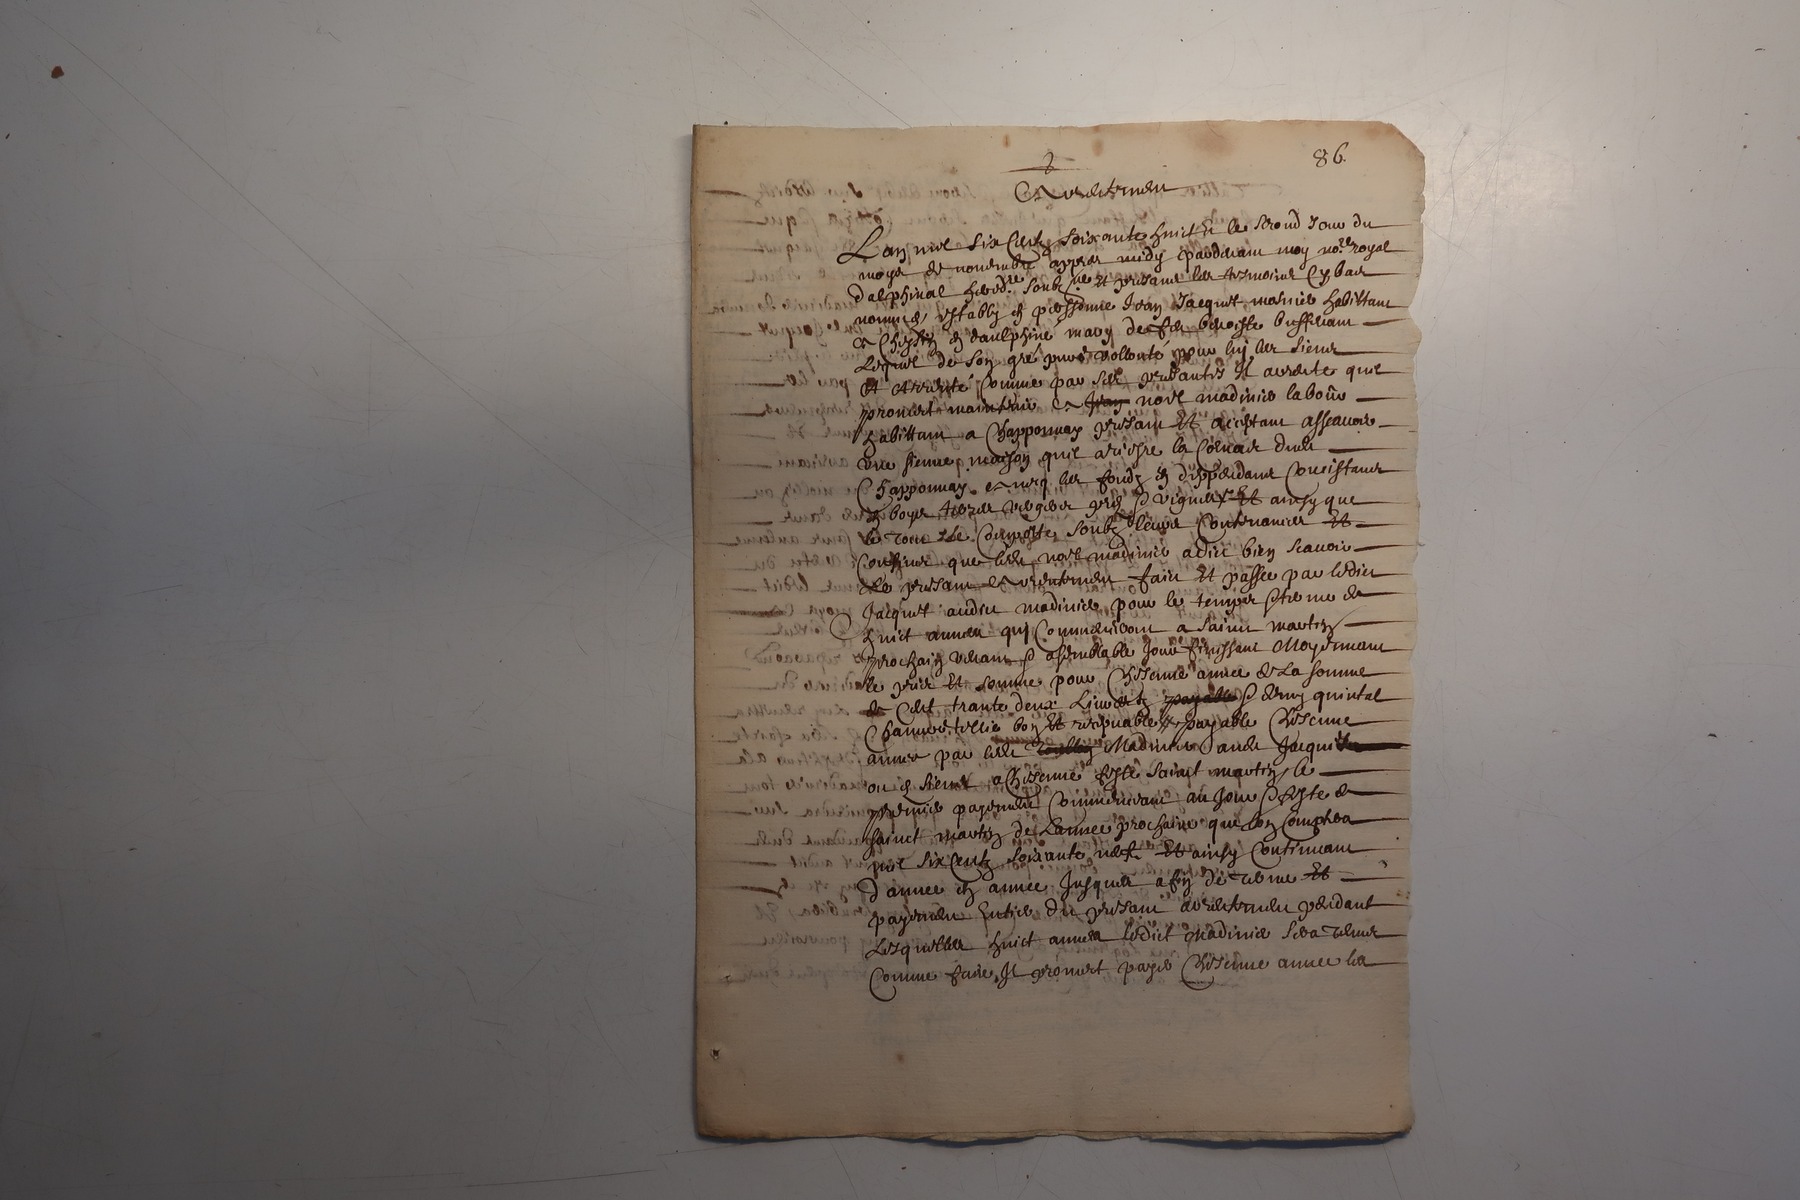 86
Arrentement
Lan mil six Centz soixante huict et le second Jour du
moys de novembre appres midy pardevant moy no.re royal
dalphinal heredre soubz.né et presant les tesmoins Cy bas
nommés estably en personne Jean Jacquet masnier habittant
a en daulphiné mary de feu benoiste buffevant
Lequel de son gré pure vollonté pour luy les siens
Et arrenté Comme par ses presantes Il arrente que
promect maintenir A noel madinier labour
habittant a Chapponnay presant Et acceptant assavoir
une sienne maison quil a rière la Comté dudit
Chapponnay avecq les fondz en deppendant Concistant
En boys terres verger prés & vignes Et ainsy que
le tout se Comporte soubz leurs Contenances Et
Confins que ledit noel madinier a dict bien scavoir
Le presant Arrentement faict Et passé par ledict
Jacquet audict madinier pour le temps & terme de
huict années qui Commenceront a sainct martin
prochain venant & a semblable Jour finissant Moyennant
le prix Et somme pour Chascune année de La somme
de Cent trante deux Livres & demy quintal
Chanvre bon Et recepvable payable Chascune
année par ledit Madinier audit Jacquet
ou es siens a Chascune feste sainct martin le
premier payement Commencant au Jour & feste de
sainct martin de Lannée prochaine que lon Comptera
mil six Centz soixante neuf Et ainsy Continuant
d année en année Jusques a fin de terme Et
payement Entier du presant arrentement pendant
Lesquelles huict années ledict Madinier sera tenu
Comme faire Il promect payer Chascune année les